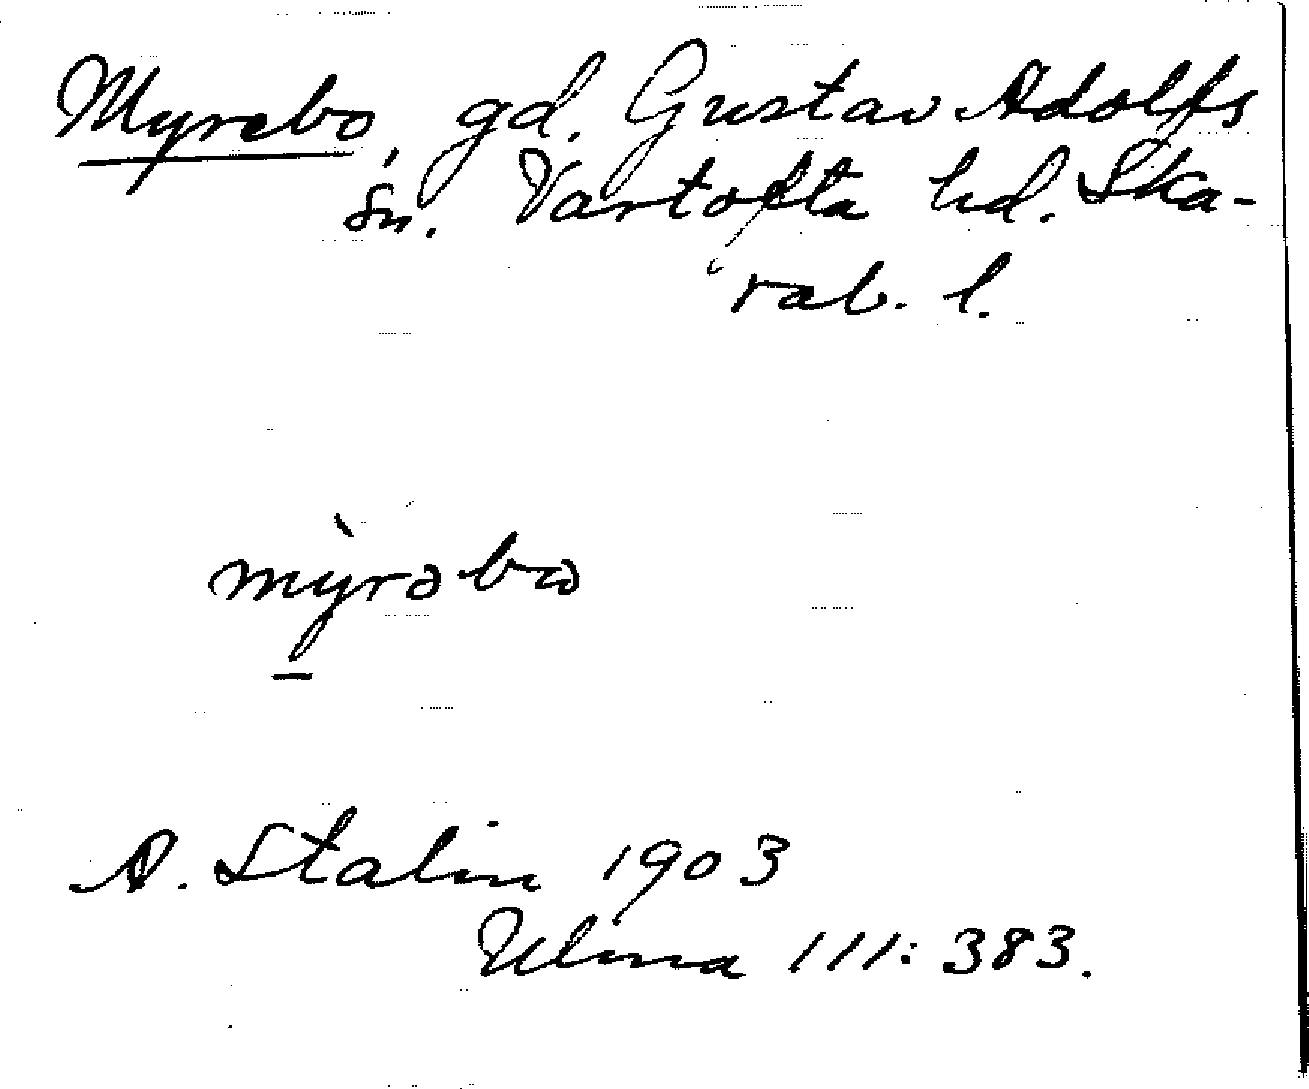 Myrebo, gd. Gustav Adolfs
sn. Vartofta hd. Ska-
rab. l.
mỳrəbω
A. Stalin 1903
Ulma 111: 383.